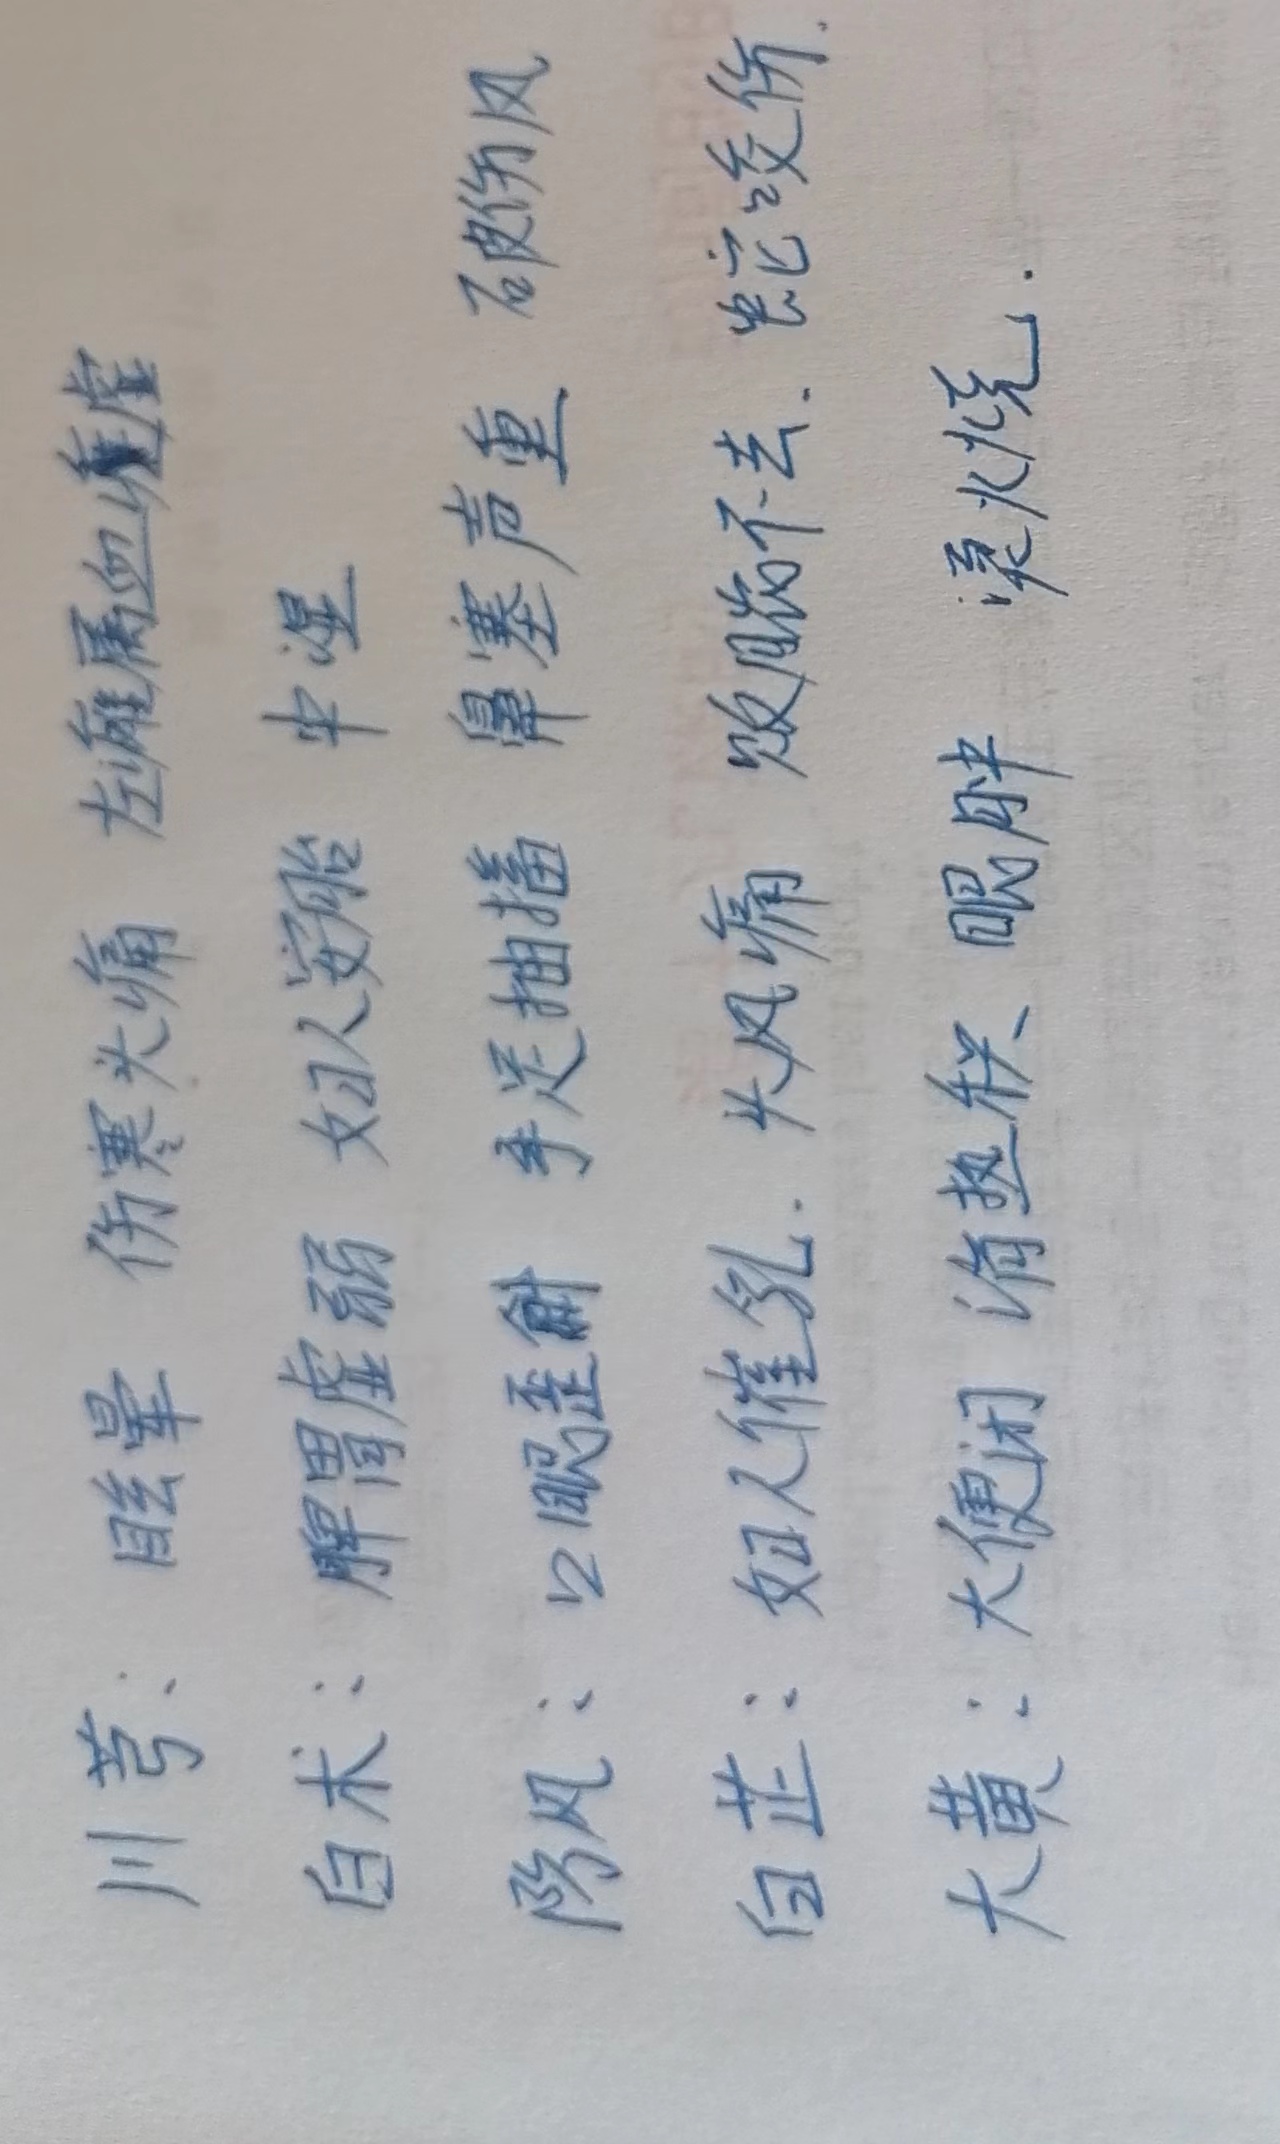 川芎：眩晕 伤寒头痛 左瘫属血虚
白术：脾胃虚弱 妇人安胎 中湿
防风：口眼歪斜 手足抽搐 鼻塞声重 破伤风
白芷：妇人催乳. 头风痛 败脓不去. 蛇咬伤.
大黄：大便闭 消热积、眼肿 汤火烧.